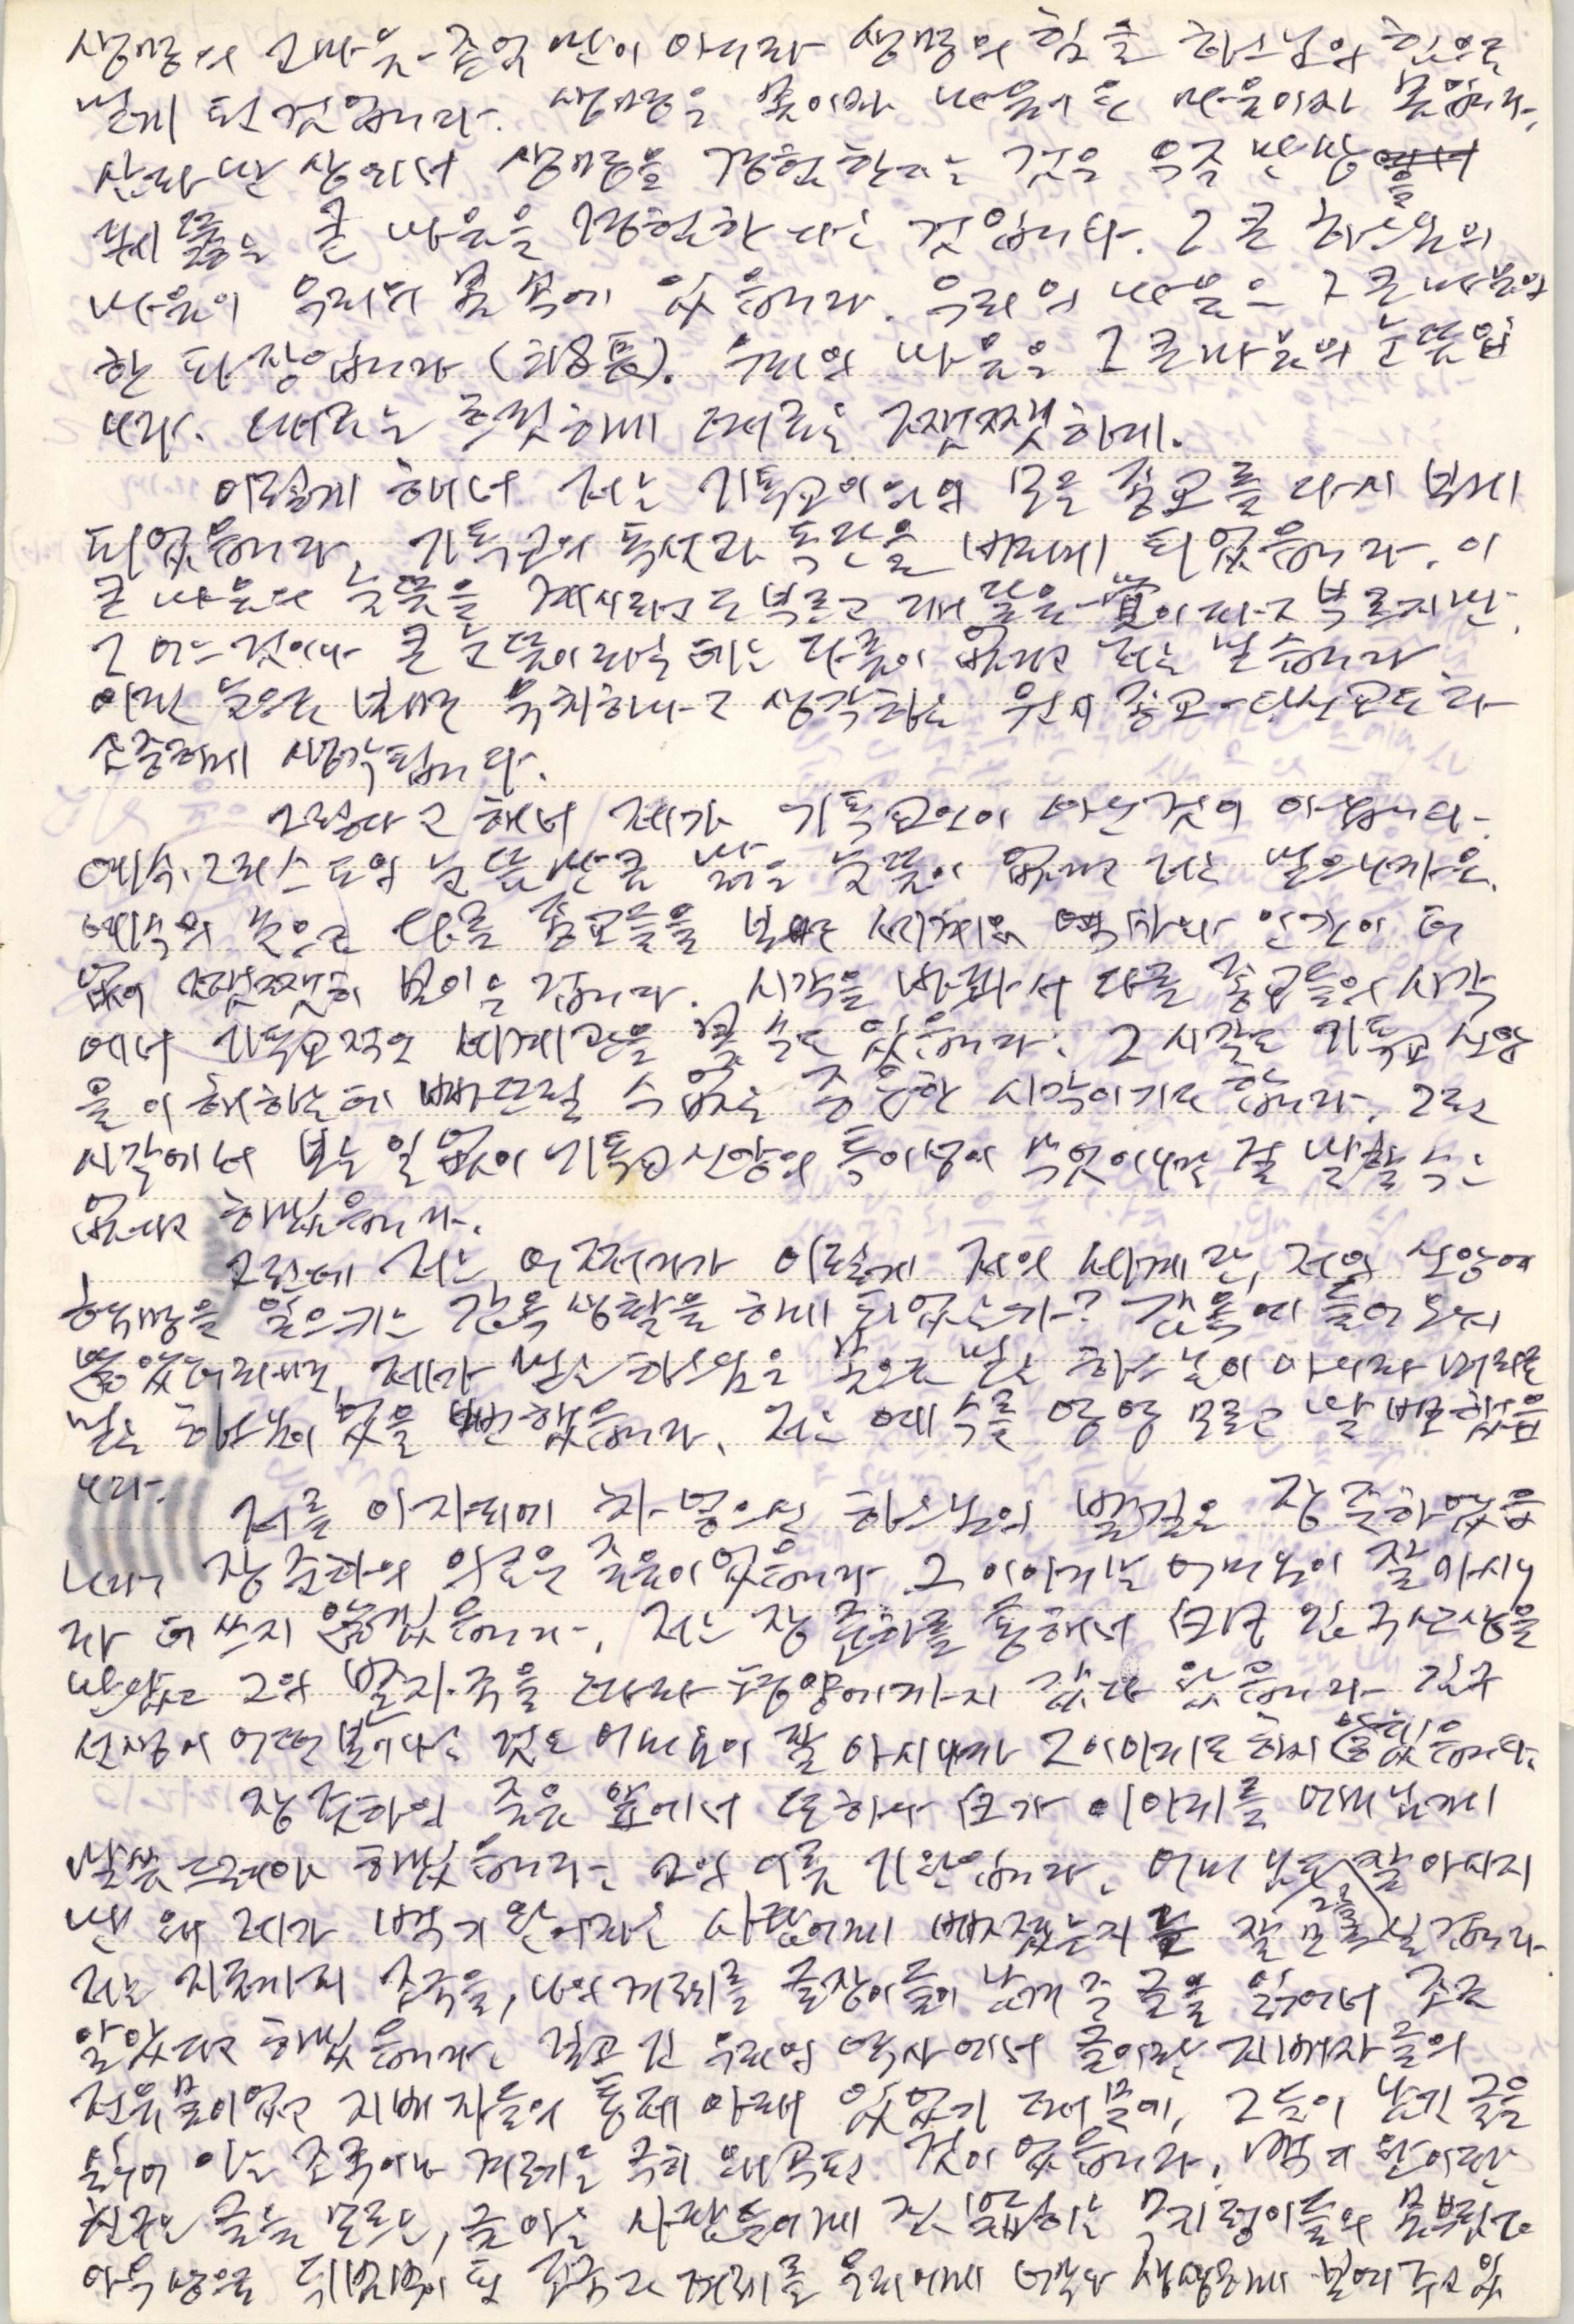 생명의 고마움-즐거움만이 아니라 생명의 힘을 하느님의 힘으로
믿게 된 것입니다. 생명은 몸이자 마음이요 마음이자 몸입니다.
산다는 상에서 생명을 경험한다는 것은 우주 만방을
꿰뚫는 큰 마음을 경험한다는 것입니다. 그 큰 하느님의
마음이 우리의 몸 속에 있읍니다. 우리의 마음은 그 큰 마음의
한 파장입니다. 우리의 마음은 그 큰 마음의 눈뜸입
니다. 때로는 흐릿하게 때로는 쨍쨍하게.
이렇게 해서 저는 기독교 이외의 모든 종교를 다시 보게
되었읍니다. 기독교의 독선과 독단을 버리게 되었읍니다. 이
큰 마음의 눈뜸을 계시라고도 부르고 깨달음-覺이라고 부르지만,
그 어느 것이나 큰 눈뜸이라는 데는 다름이 없다고 저는 믿습니다.
어떤 눈으로 보면 유치하다고 생각하는 원시 종교-무속교도 다
소중하게 생각됩니다.
그렇다고 해서 제가 기독교인이 아닌 것이 아닙니다.
예수 그리스도의 눈뜸만큼 밝은 눈뜸이 없다고 저는 믿으니까요.
예수의 눈으로 다른 종교들을 보면 세계와 역사와 인간이 더
없이 쨍쨍히 보이는 겁니다. 시각을 바꿔서 다른 종교들의 시각
에서 기독교적인 세계관을 볼 수도 있읍니다. 그 시각도 기독교 신앙
을 이해하는데 빠뜨릴 수 없는 중요한 시각이기도 합니다. 그런
시각에서 보는 일 없이 기독교 신앙의 특이성이 무엇이냐는 걸 말할 수는
없다고 하겠읍니다.
그런데 저는 어쩌다가 이렇게 저의 세계관, 저의 신앙에
혁명을 일으키는 감옥생활을 하게 되었는가? 감옥에 들어오지
않았더라면, 제가 믿는 하느님은 몸으로 믿는 하느님이 아니라 머리로
믿는 하느님이 었을 뻔했읍니다. 저는 예수를 영영 모르고 말 뻔했읍
니다.
저를 이 자리에 차 넣으신 하느님의 발길은 장준하였읍
니다. 장준하의 의로운 죽음이었읍니다. 그 이야기는 어머님이 잘 아시니
까 더 쓰지 않겠읍니다. 저는 장준하를 통해서 김구 선생을
만났고 그의 발자국을 따라 평양에까지 갔다 왔읍니다. 김구
선생이 어떤 분이라는 것도 어머님이 잘 아시니까 그 이야기도 하지 않겠읍니다.
장준하의 죽음 앞에서 또 하나 이야기를 어머님께
말씀드려야 하겠읍니다. 그의 이름 기완입니다. 어머님도 잘 아시지
만 왜 제가 백기완이라는 사람에게 빠졌는지를 잘 모르실 겁니다.
저는 지금까지 조국을, 나의 겨레를 글장이들이 남겨 준 글을 읽어서 조금
알았다고 하겠읍니다. 길고 긴 우리의 역사에서 글이란 지배자들의
전유물이었고 지배자들의 통제 아래 있었기 때문에, 그들이 남긴 글을
읽어 아는 조국이나 겨레는 극히 왜곡된 것이었읍니다. 백기완이란
친구는 글을 모르는, 글 아는 사람들에게 짓밟히는 무지렁이들의 몸부림과
아우성으로 뒤범벅이 된 조국과 겨레를 우리에게 너무나 생생하게 보여 주고 있